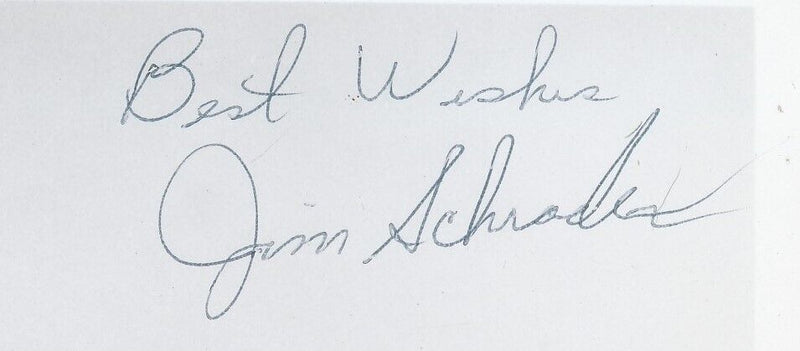 Best Wishes
Jim Schrader